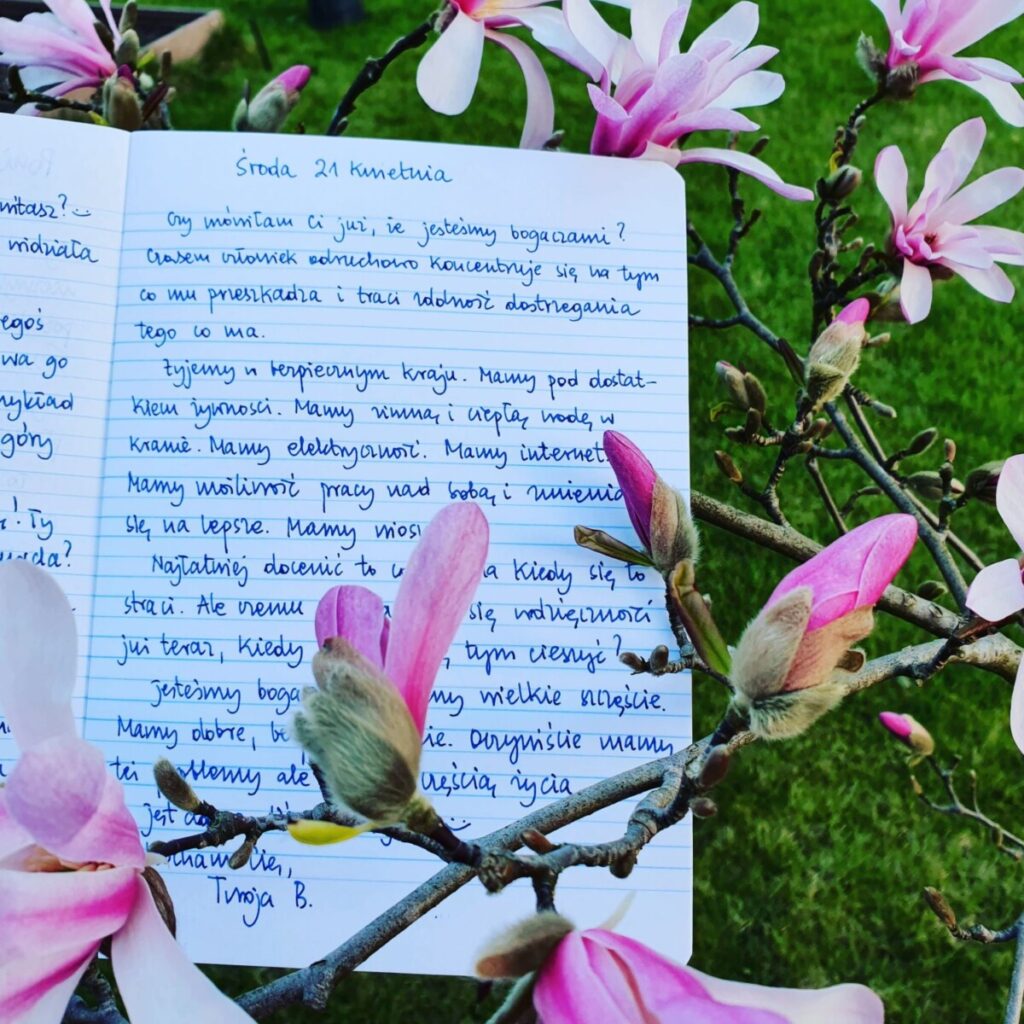 witasz?
widziała
egoś
wa go
zykład
góry
! Ty
Środa 21 kwietnia
Czy mówiłam Ci już, że jesteśmy bogaczami?
Czasem człowiek odruchowo koncentruje się na tym
co mu przeszkadza i traci zdolność dostrzegania
tego co ma.
Żyjemy w bezpiecznym kraju. Mamy pod dostat-
kiem żywności. Mamy zimną i ciepłą wodę w
kranie. Mamy elektryczność. Mamy internet.
Mamy możliwość pracy nad sobą i zmienia
się na lepsze. Mamy wios
Najłatwiej docenić to c a kiedy się to
straci. Ale czemu się wdzięczności
już teraz, kiedy tym cieszyć?
Jesteśmy boga my wielkie szczęście.
Mamy dobre, be ie. Oczywiście mamy
też problemy ale częścią życia
jest
Kocham Cię,
Twoja B.